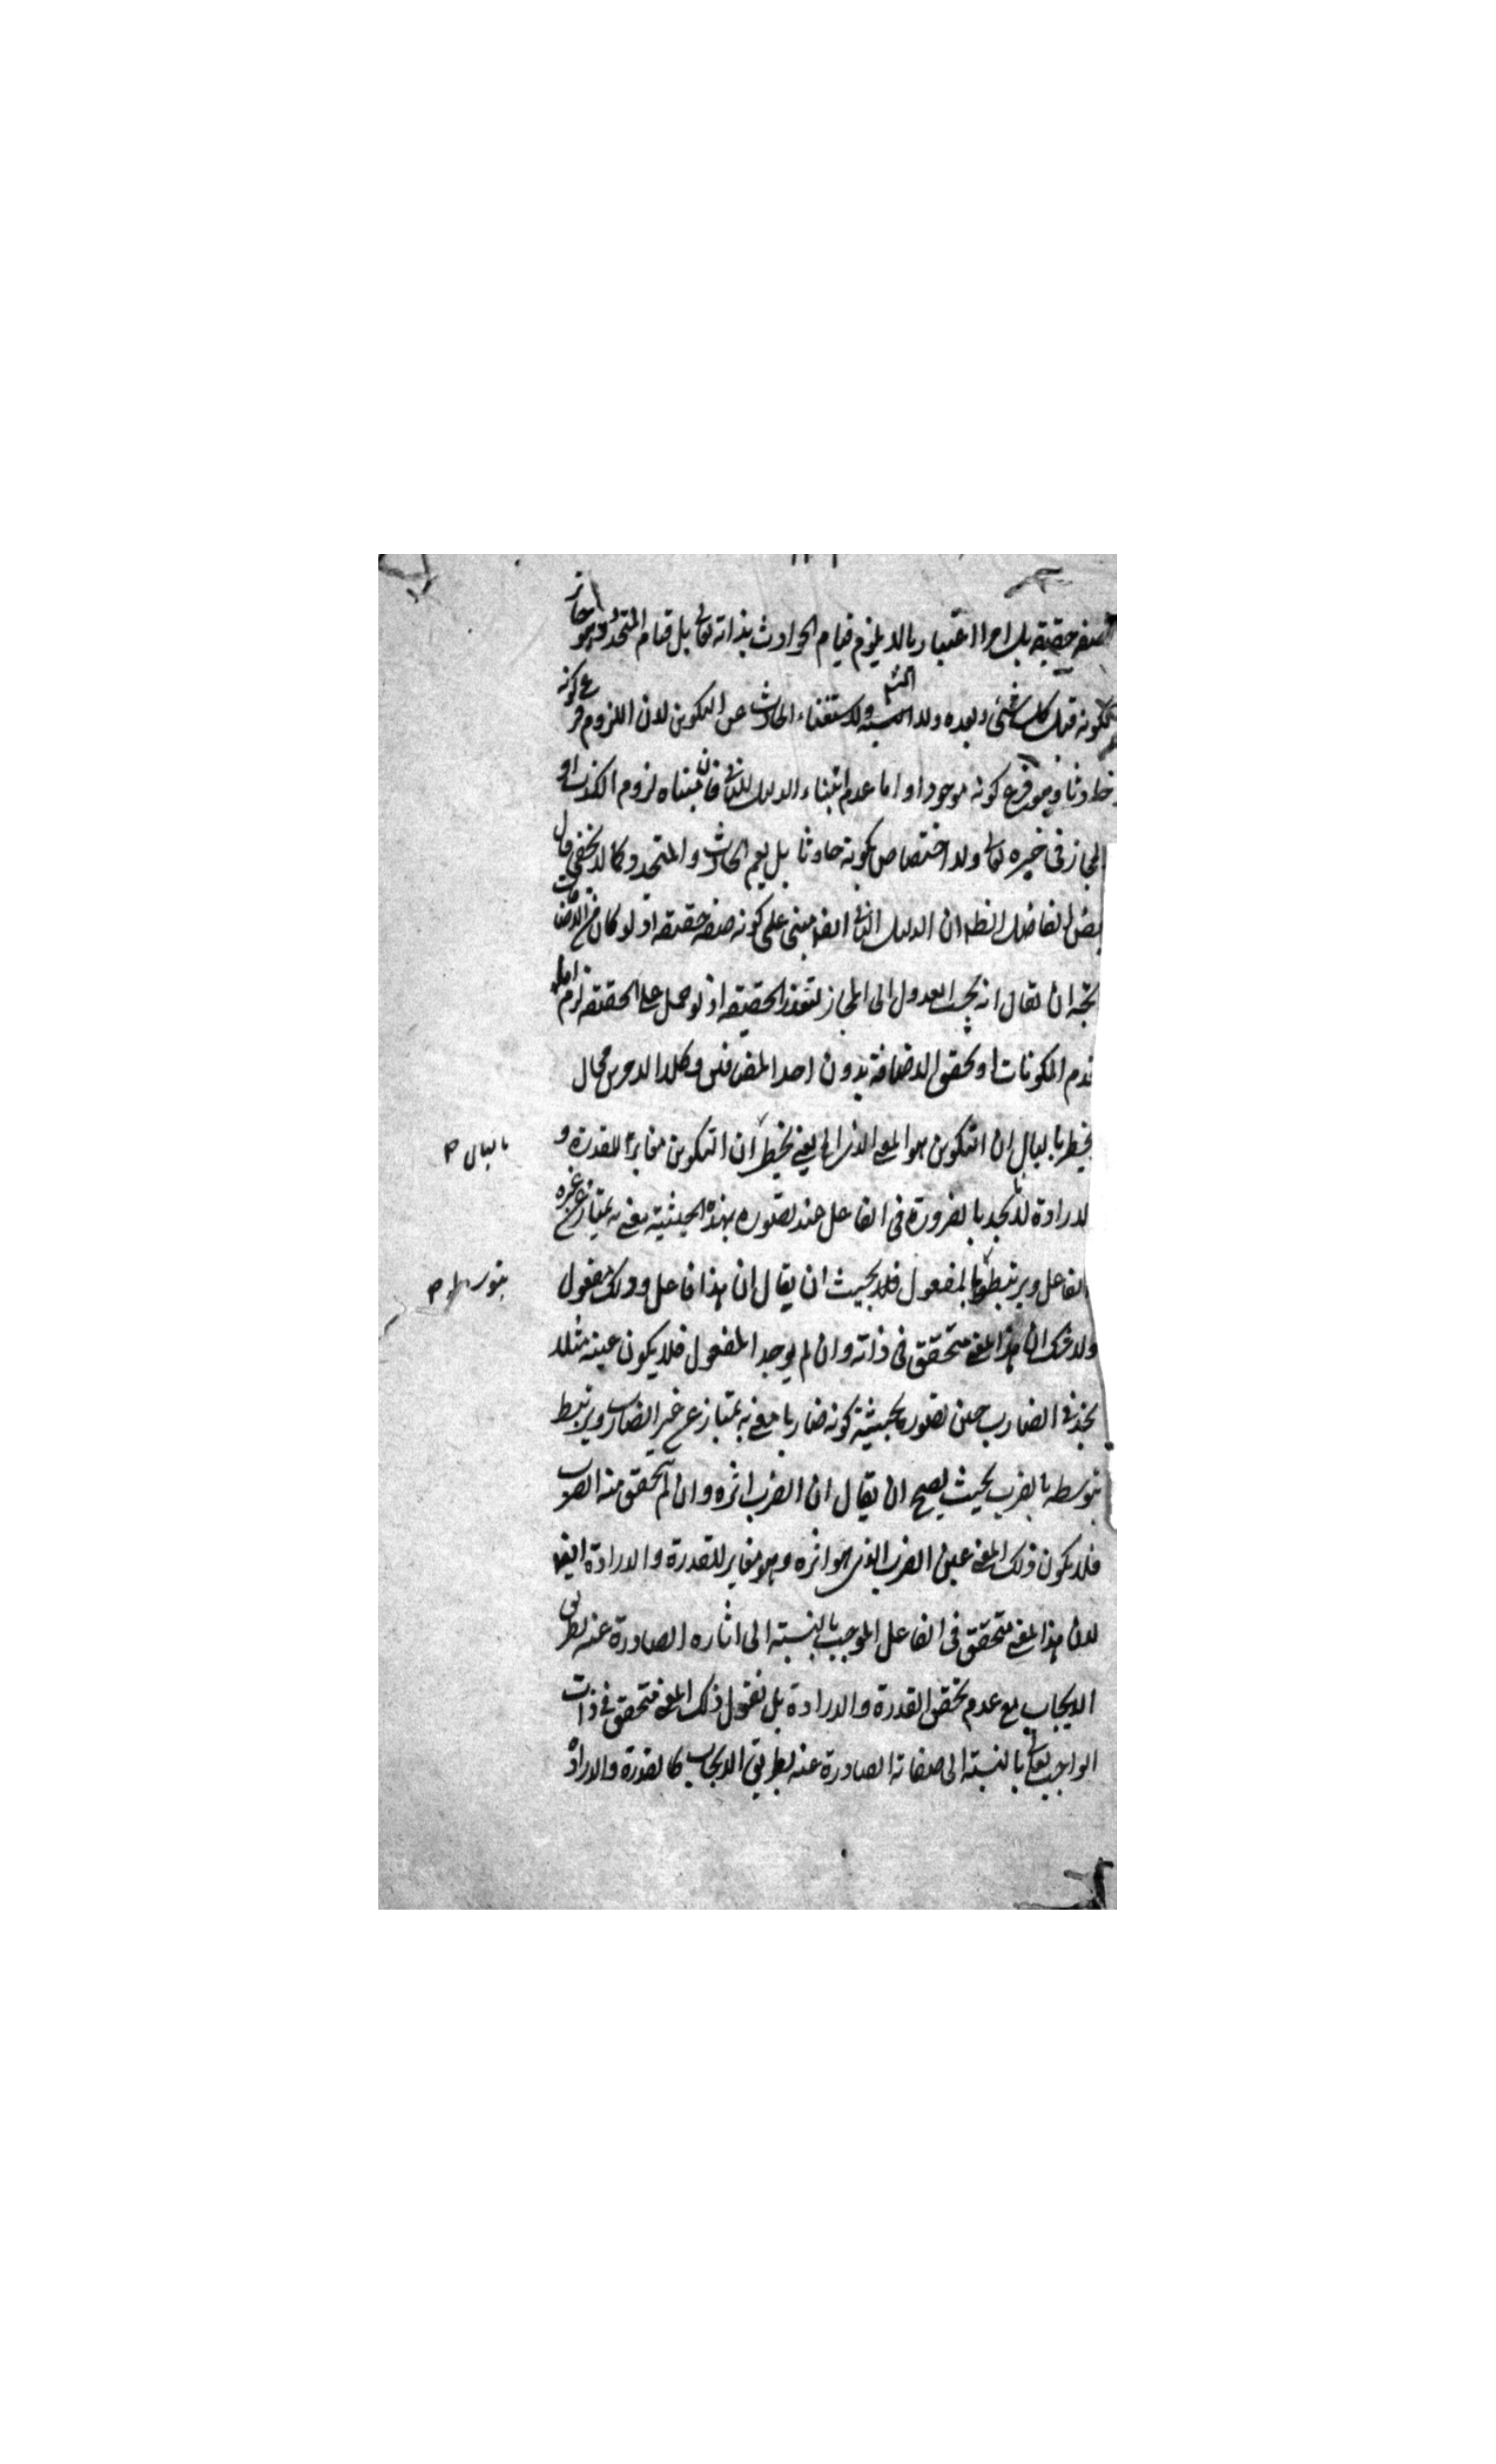 صفة حقيقة بل امرا اعتباريا لا يلزم قيام الحوادث بذاته تعالى بل قيام المتجدد وهو جائز
ككونه قبل كل شئ وبعده ولا التسلسل ولا استغناء الحادث عن التكوين لان اللزوم فرع كونه
حادثا وهو فرع كونه موجودا واما عدم ابتناء الدليل الثاني فلان مبناه لزوم الكذب او
المجاز في خبره تعالى ولا اختصاص بكونه حادثا بل يعم الحادث والمتجدد وكما لا يخفى قال
بعض الفاضل الظ ان الدليل الثاني ايضا مبنى على كونه صفة حقيقة اذ لو كان من الاضافات
يتجه ان يقال انه يجب العدول الى المجاز لتعذر الحقيقة اذ لو حمل على الحقيقة لزم اما
قدم المكونات او تحقق الاضافة بدون احد المضافين وكلا الامرين محال
يخطر بالبال ان التكوين هو المعنى الذى الخ يعنى يخطر ان التكوين مغاير للقدرة و
الارادة لانا نجد بالضرورة في الفاعل عند تصوره بهذه الحيثية معنى به يمتاز عن غيره
الفاعل ويرتبط بالمفعول فلا بحيث ان يقال ان هذا فاعل وذلك مفعول
ولا شك ان هذا المعنى متحقق في ذاته وان لم يوجد المفعول فلا يكون عينه مثلا
نجد في الضارب حين تصوره بحيثية كونه ضاربا معنى به يمتاز عن غير الضارب ويرتبط
بتوسطه بالضرب بحيث يصح ان يقال ان الضرب اثره وان لم يتحقق منه الضرب
فلا يكون ذلك المعنى عين الضرب الذى هو اثره وهو مغاير للقدرة والارادة ايضا
لان هذا المعنى متحقق في الفاعل الموجب بالنسبة الى اثاره الصادرة عنه بطريق
الايجاب مع عدم تحقق القدرة والارادة بل نقول ذلك المعنى متحقق في ذات
الواجب تعالى بالنسبة الى صفاته الصادرة عنه بطريق الايجاب كالقدرة والارادة
بالبال